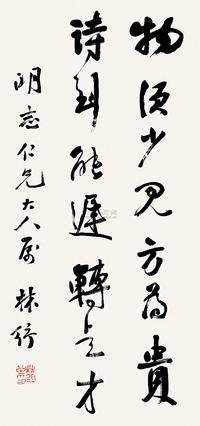 物須少見方為貴
詩到能遲轉是才
明仁兄大人属 林紓